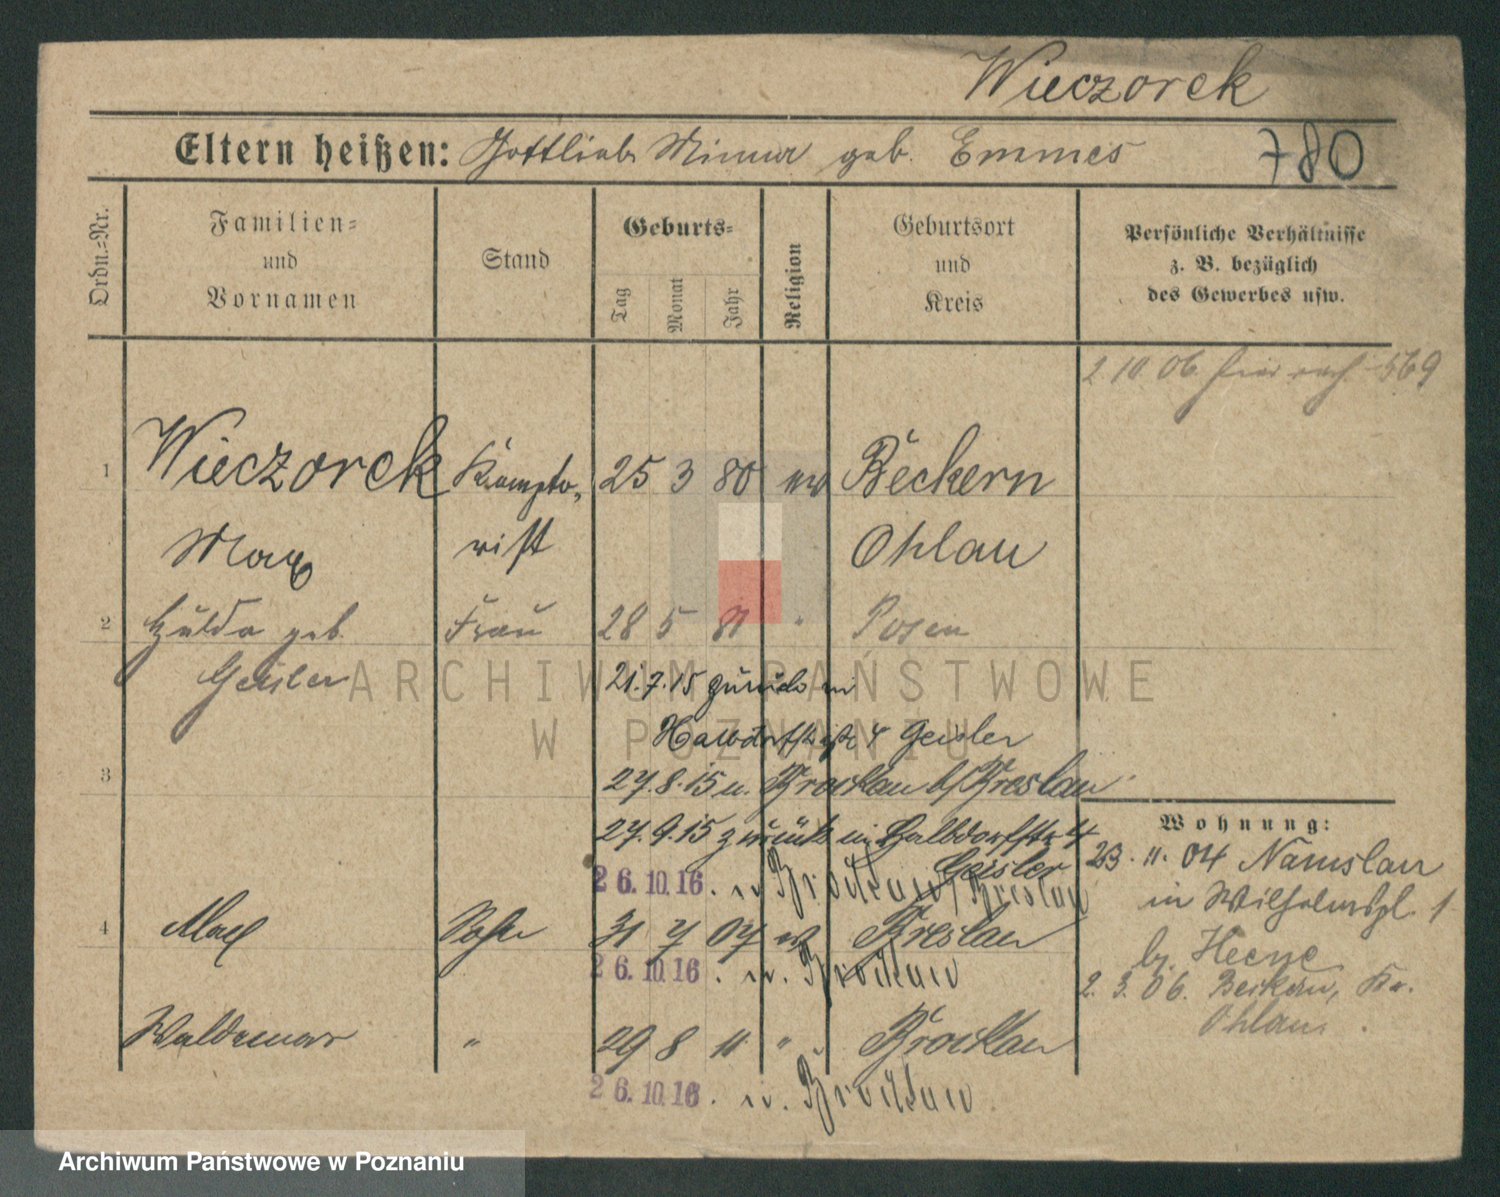 Wieczorek
Eltern heißen: Gottlieb Minna geb. Emmes 780
Ordn.-Nr.
Familien- und Vornamen
Stand
Geburts-
Tag Monat Jahr
Religion
Geburtsort und Kreis
Persönliche Verhältnisse z. B. bezüglich des Gewerbes usw.
2 10 06 569
1 Wieczorek Kompto- 25 3 80 ev Beckern
Max rist Ohlau
2 Hulda geb. Frau 28 5 81 " Posen
Geisler
21.7.15 zurück in
Halbdorfstraße 4 Geisler
3 27.8.15 n. Brockau b/Breslau
27.9.15 zurück in Halbdorfstr 4
Geisler
26.10.16. n. Brockau/Breslau
4 Max Sohn 31 7 07 ev Breslau
26.10.16. n. Brockau
Waldemar " 29 8 11 " Brockau
26.10.16. n. Brockau
Wohnung:
23. 11. 04 Namslau
in Wilhelmspl. 1
by
2. 3. 06. Kr.
Ohlau.
ARCHIWUM PAŃSTWOWE
W POZNANIU
Archiwum Państwowe w Poznaniu